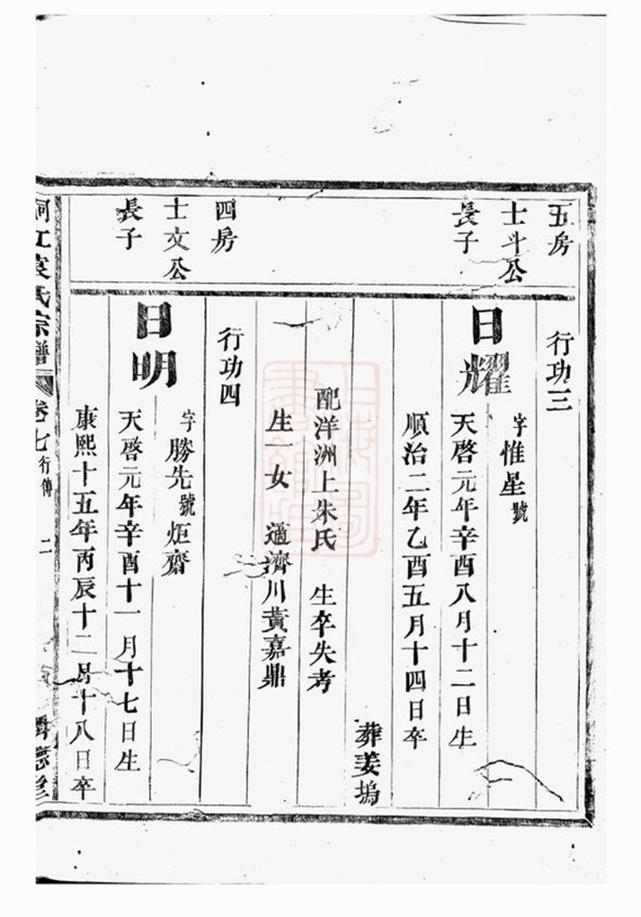 五房
士斗公
長子
行功三
日耀
字惟星號
天啓元年辛酉八月十二日生
順治二年乙酉五月十四日卒
葬姜塢
配洋洲上朱氏 生卒失考
生一女 適濟川黃嘉鼎
四房
士文公
長子
行功四
日明
字勝先號炬齋
天啓元年辛酉十一月十七日生
康熙十五年丙辰十二月十八日卒
江袁氏宗譜
卷七 行傳 二